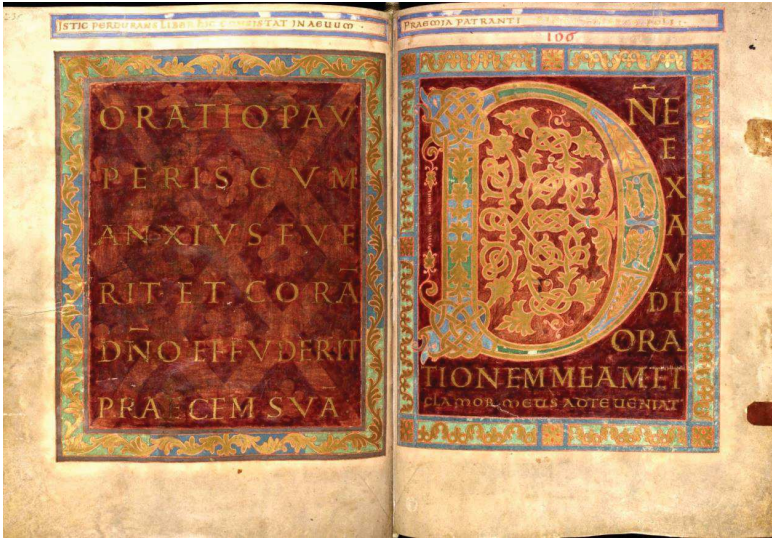 ISTIC PERDURANS LIBER HIC CONSISTAT IN AEUUM
ORATIO PAV
PERIS CVM
ANXIVS FVE
RIT ET CORA
DNO EFFVDERIT
PRAECEM SVA
PRAEMIA PATRANTI
106
DNE
E
X
A
V
DI
ORA
TIONEM MEAM ET
CLAMOR MEUS AD TE UENIAT